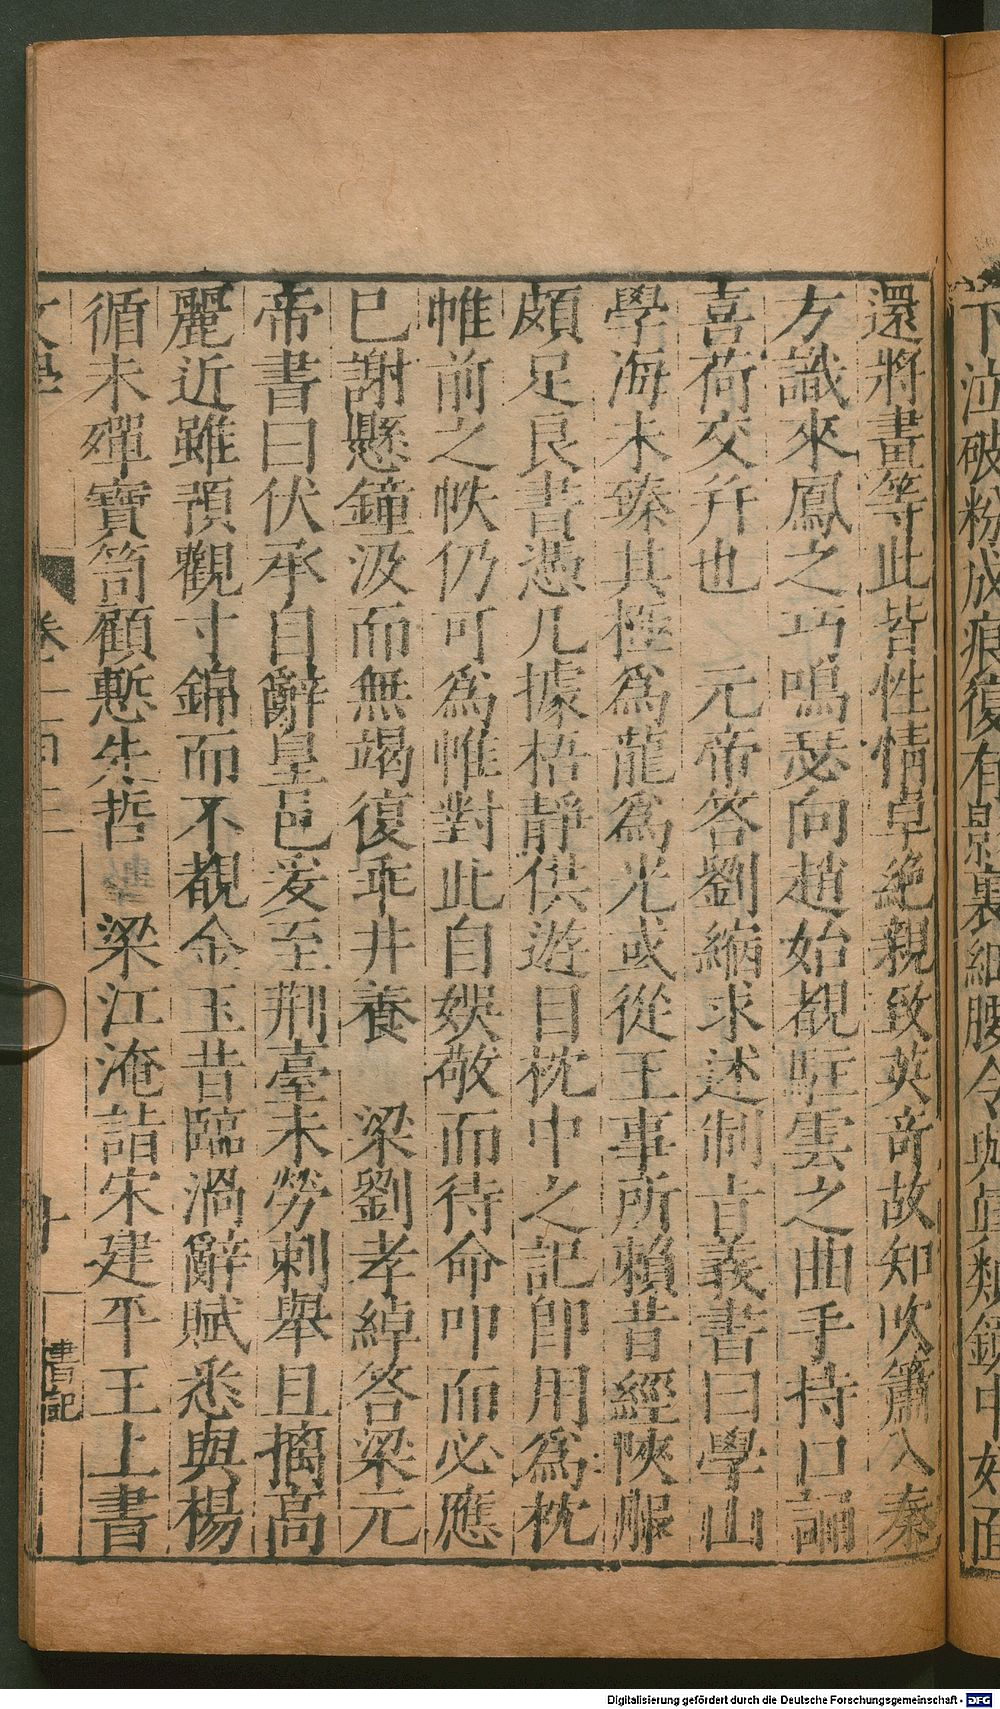 下泣破粉成痕復有影裏細腰令與真類鏡中好面
還將畫等此皆性情卓絕親致英奇故知吹簫入秦
方識來鳳之巧鳴瑟向趙始覩駐雲之曲手持口誦
喜荷交并也 元帝答劉縮求述制旨義書曰學山
學海未臻其極爲龍爲光或從王事所賴昔經陝服
頗足良書憑几據梧靜供遊目枕中之記卽用爲枕
帷前之帙仍可爲帷對此自娛敬而待命叩而必應
已謝懸鐘汲而無竭復乖井養 梁劉孝綽答梁元
帝書曰伏承自辭皇邑爰至荆臺未勞刺舉且摛高
麗近雖預觀寸錦而不覩金玉昔臨渦辭賦悉與楊
循未殫寶笥顧慙先哲 梁江淹詣宋建平王上書
卷一百三
十
書記
Digitalisierung gefördert durch die Deutsche Forschungsgemeinschaft - DFG